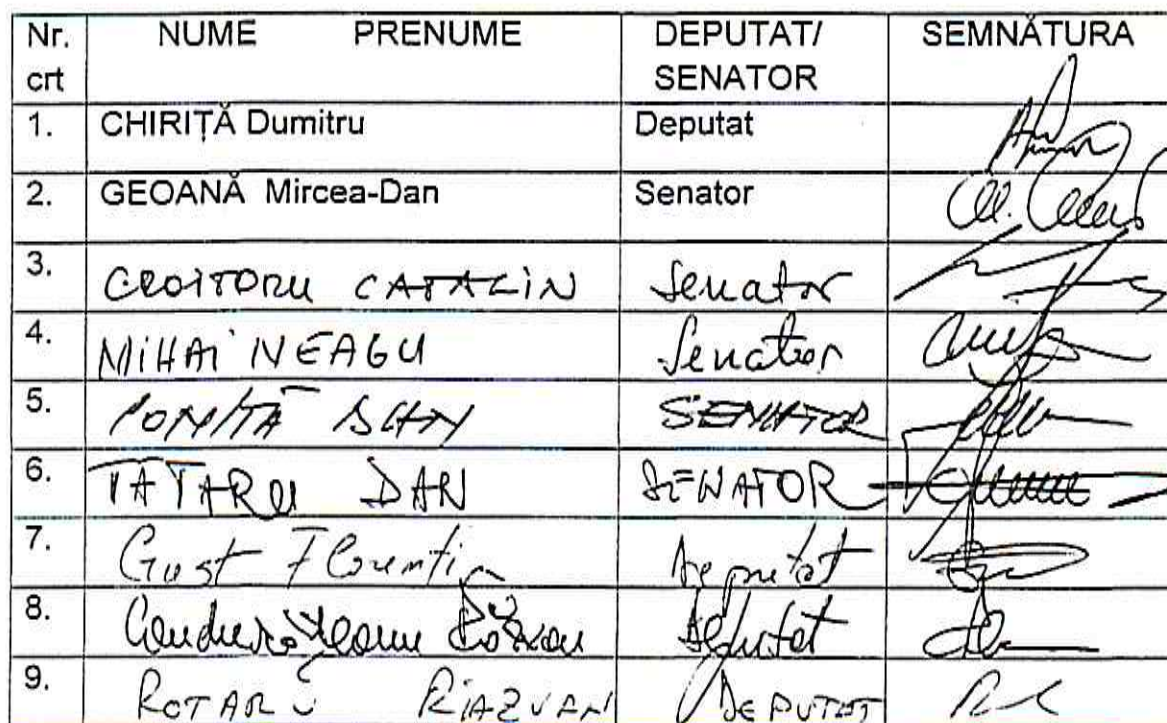 Nr. crt NUME PRENUME DEPUTAT/ SENATOR SEMNĂTURA
1. CHIRIȚĂ Dumitru Deputat
2. GEOANĂ Mircea-Dan Senator
3. CROITORU CATALIN Senator
4. MIHAI NEAGU Senator
5. SENATOR
6. TATARU DAN SENATOR
7. Gust Florentin Deputat
8. Deputat
9. ROTARU RĂZVAN DEPUTAT